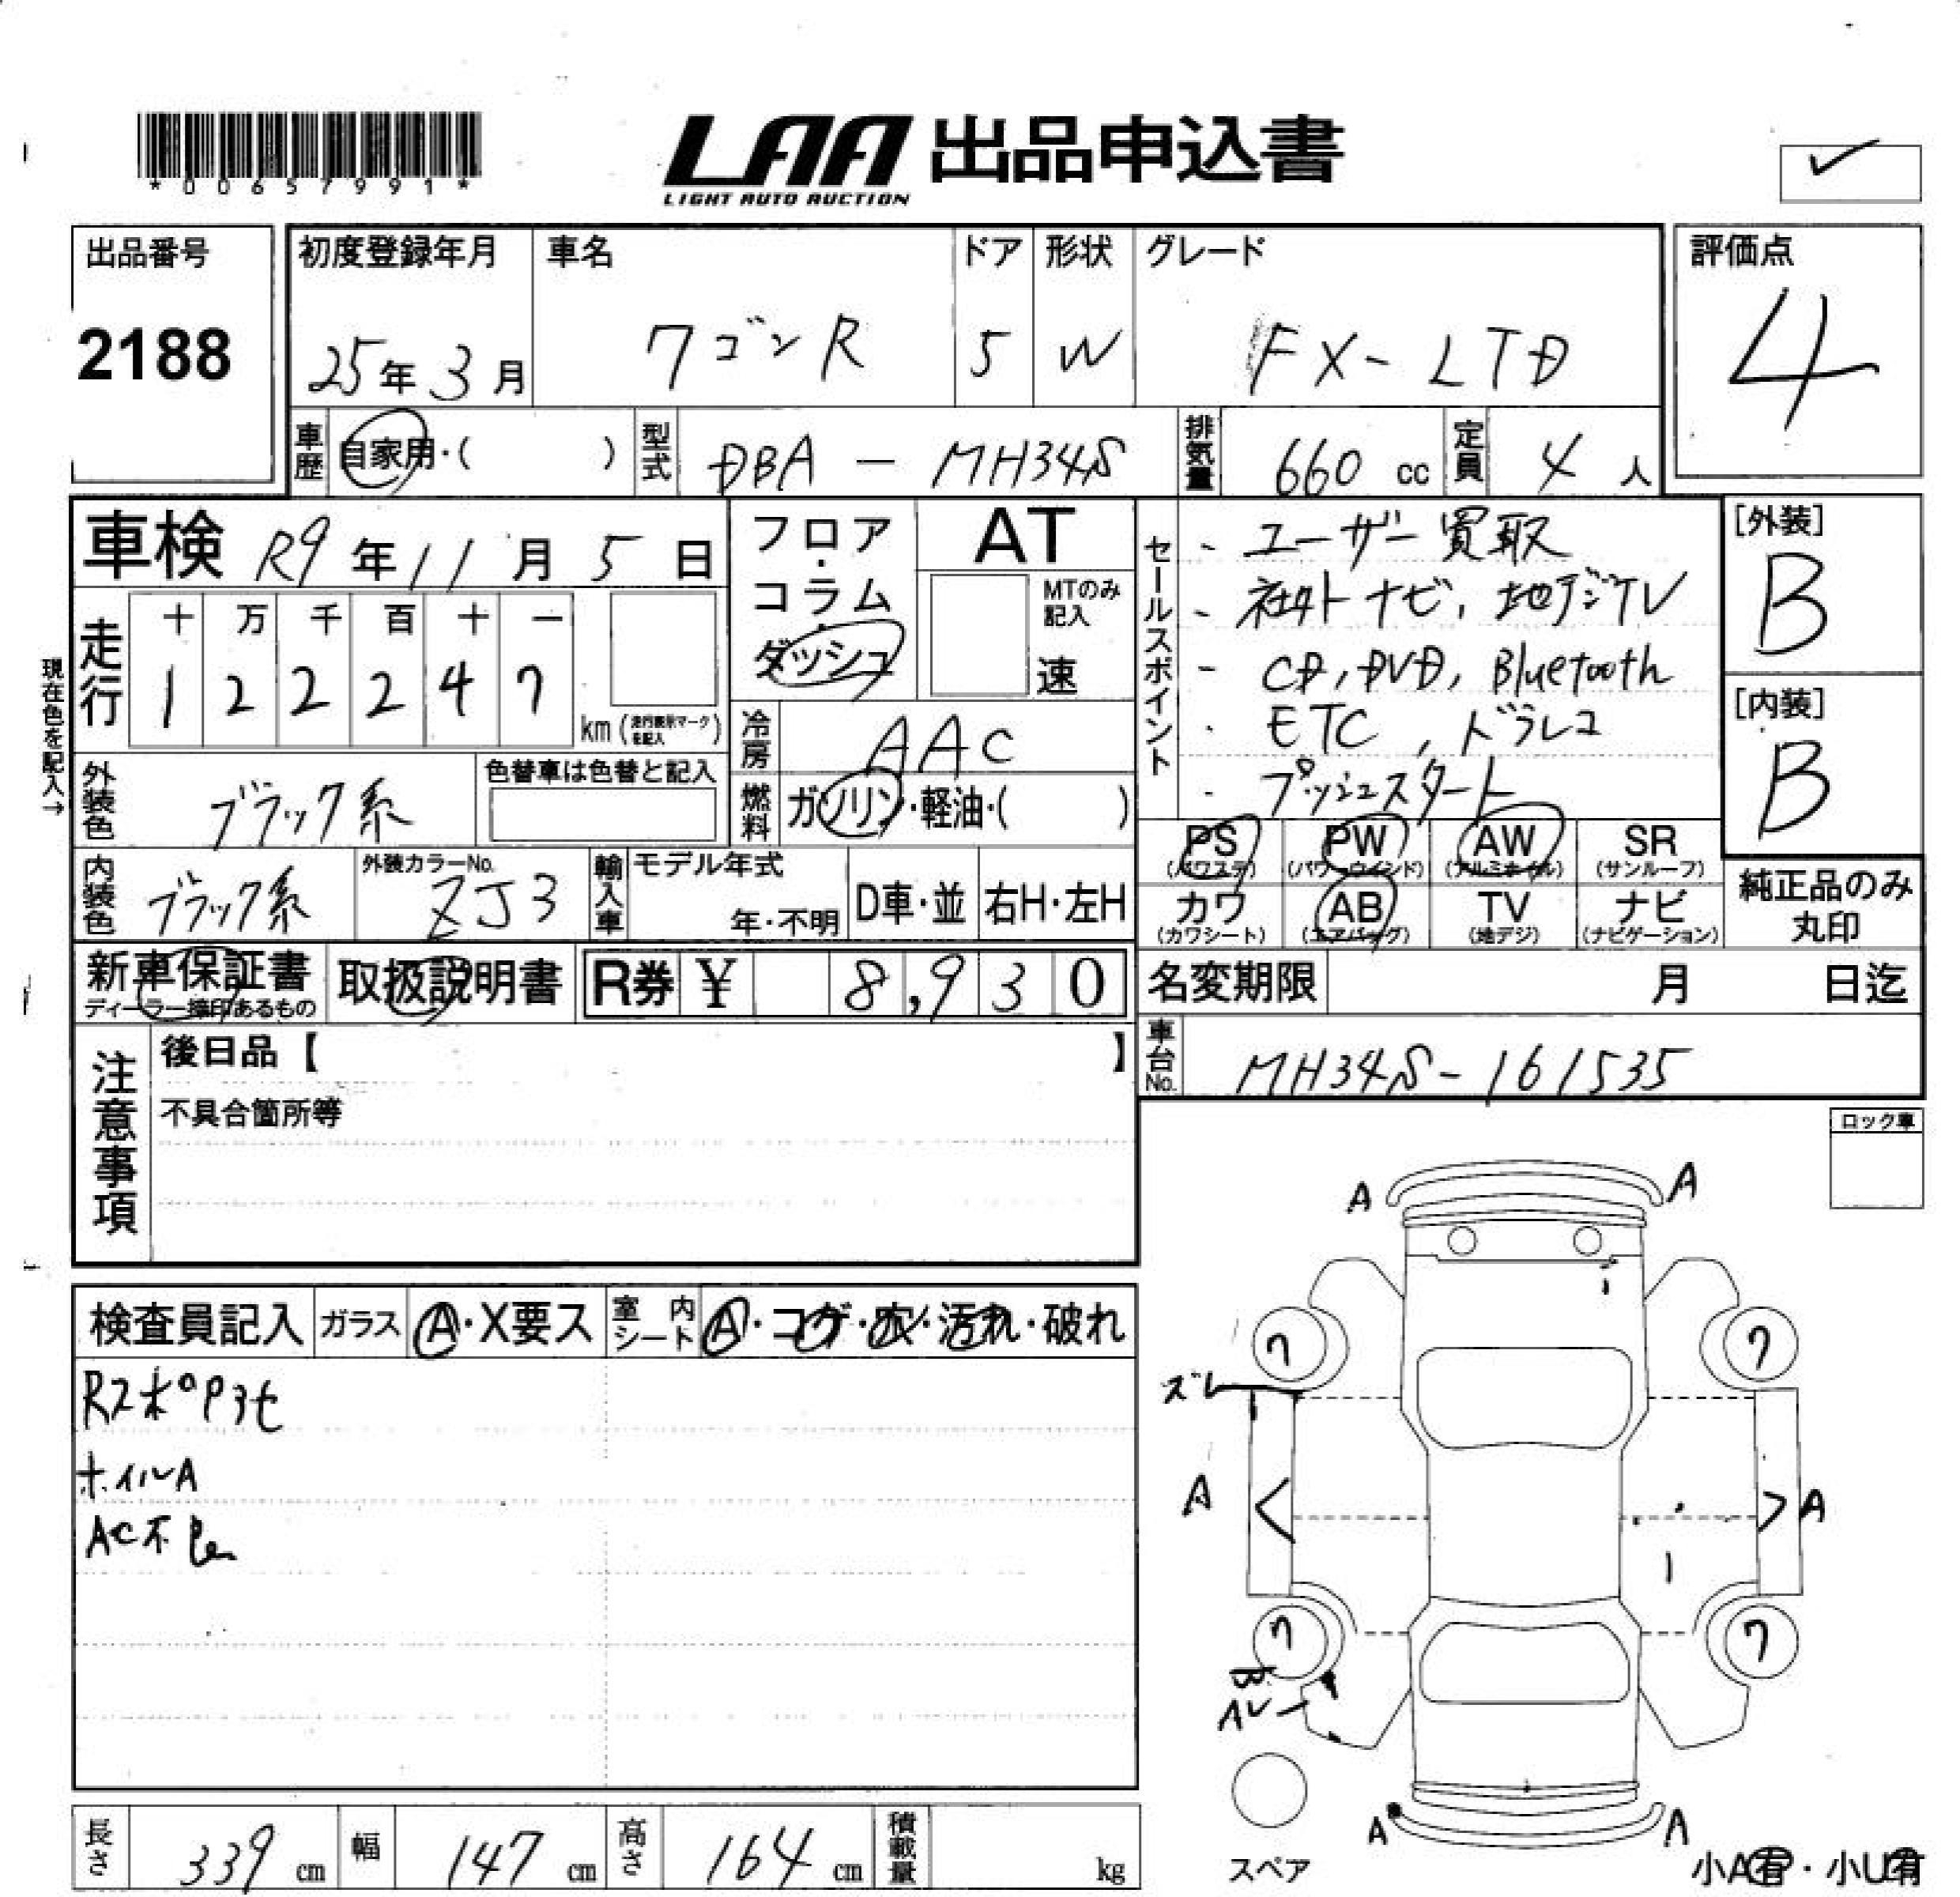 *00657991*
LAA 出品申込書
LIGHT AUTO AUCTION
出品番号
2188
初度登録年月
25年3月
車名
ワゴンR
ドア
5
形状
W
グレード
FX-LTD
評価点
4
車歴 自家用・( )
型式 DBA - MH34S
排気量 660 cc
定員 4 人
車検 R9年11月5日
走行
十 万 千 百 十 一
1 2 2 2 4 7
km (走行表示マークを記入)
現在色を記入→
フロア・コラム・ダッシュ
AT
MTのみ記入
速
冷房 AAC
燃料 ガソリン・軽油・( )
セールスポイント
- ユーザー買取
- 社外ナビ, 地デジTV
- CD, DVD, Bluetooth
- ETC, ドラレコ
- プッシュスタート
[外装]
B
[内装]
B
外装色 ブラック系
色替車は色替と記入
内装色 ブラック系
外装カラーNo. ZJ3
輸入車 モデル年式
年・不明
D車・並
右H・左H
PS (パワステ)
PW (パワーウインド)
AW (アルミホイル)
SR (サンルーフ)
カワ (カワシート)
AB (エアバッグ)
TV (地デジ)
ナビ (ナビゲーション)
純正品のみ丸印
新車保証書
ディーラー捺印あるもの
取扱説明書
R券 ¥ 8,930
名変期限 月 日迄
車台No. MH34S-161535
注意事項
後日品【 】
不具合箇所等
ロック車
検査員記入
ガラス A・X要ス
室内シート A・コゲ・穴・汚れ・破れ
ホイルA
A A
ワ ワ
ズレ
A A
ワ ワ
A A
スペア
小A有・小U有
長さ 339 cm
幅 147 cm
高さ 164 cm
積載量 kg